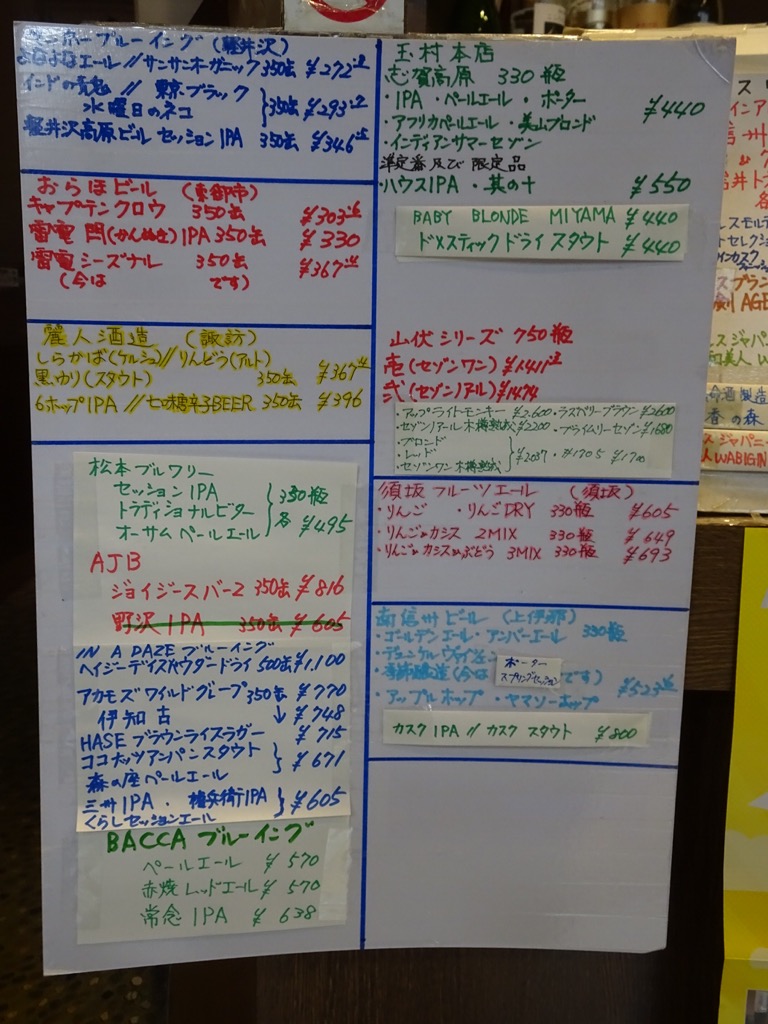 ブルーイング (軽井沢)
よなよなエール // サンサンオーガニック 350缶 ¥272
インドの青鬼 // 東京ブラック
水曜日のネコ } 350缶 ¥293
軽井沢高原ビール セッション IPA 350缶 ¥346
おらほビール (東御市)
キャプテンクロウ 350缶 ¥303
雷電 閂(かんぬき) IPA 350缶 ¥330
雷電シーズナル 350缶 ¥367
(今は です)
麗人酒造 (諏訪)
しらかば(ケルシュ) // りんどう(アルト)
黒ゆり(スタウト) 350缶 ¥367
6ホップIPA // 350缶 ¥396
松本ブルワリー
セッション IPA
トラディショナルビター
オーサム ペールエール } 330瓶 各 ¥495
AJB
ジョイジースパー2 350缶 ¥816
野沢 IPA 350缶 ¥605
IN A DAZE ブルーイング
ヘイジーデイズパウダードライ 500缶 ¥1,100
アカモズ ワイルドグレープ 350缶 ¥770
伊知古 ↓ ¥748
HASE ブラウンライスラガー ¥715
ココナッツアンパンスタウト } ¥671
森の座ペールエール
三州IPA・権兵衛IPA } ¥605
くらしセッションエール
BACCA ブルーイング
ペールエール ¥570
赤焼レッドエール ¥570
常念 IPA ¥638
玉村本店
志賀高原 330瓶
・IPA ・ペールエール ・ポーター
・アフリカペールエール ・美山ブロンド ¥440
・インディアンサマーセゾン
準定番及び限定品
・ハウスIPA ・其の十 ¥550
BABY BLONDE MIYAMA ¥440
ドメスティックドライスタウト ¥440
山伏シリーズ 750瓶
壱(セゾンワン) ¥1411
弐(セゾンノアール) ¥1474
・アップライトモンキー ¥2,600 ・ラズベリーブラウン ¥2600
・セゾンノアール木樽熟成 ¥2200 ・プライムリーセゾン ¥1680
・ブロンド
・レッド
・セゾンワン木樽熟成 } ¥2037 ¥1705 ¥1700
須坂フルーツエール (須坂)
・りんご ・りんごDRY 330瓶 ¥605
・りんご&カシス 2MIX 330瓶 ¥649
・りんご&カシス&ぶどう 3MIX 330瓶 ¥693
南信州ビール (上伊那)
・ゴールデンエール・アンバーエール 330瓶
・デュンケルヴァイツェン
・季節醸造(今は ポーター スプリングセッション です) ¥523
・アップルホップ ・ヤマソーホップ
カスク IPA // カスク スタウト ¥800